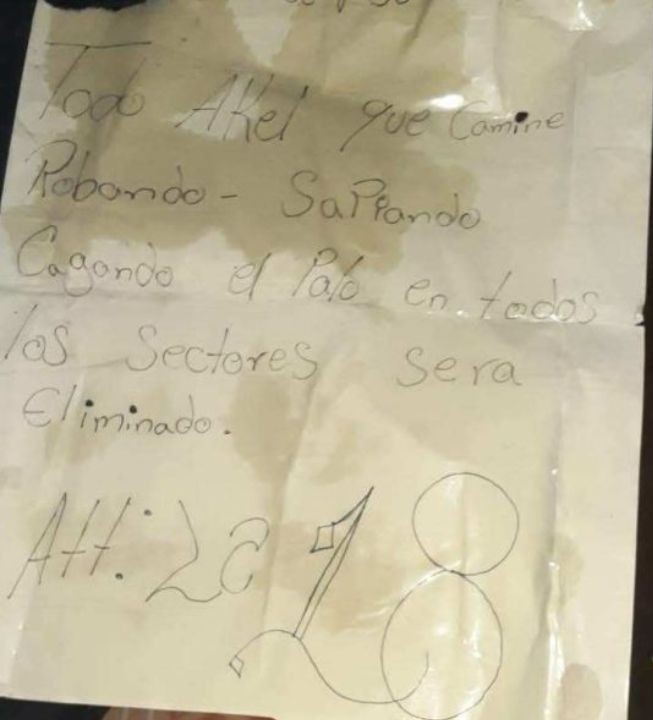 Todo AKel que Camine
Robando - SaPiando
Cagando el Palo en todos
los Sectores sera
Eliminado.
Att: La 18